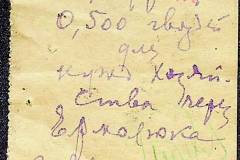 0,500 гвоздей
для
нужд Хозяй-
ства через
Ермолюка